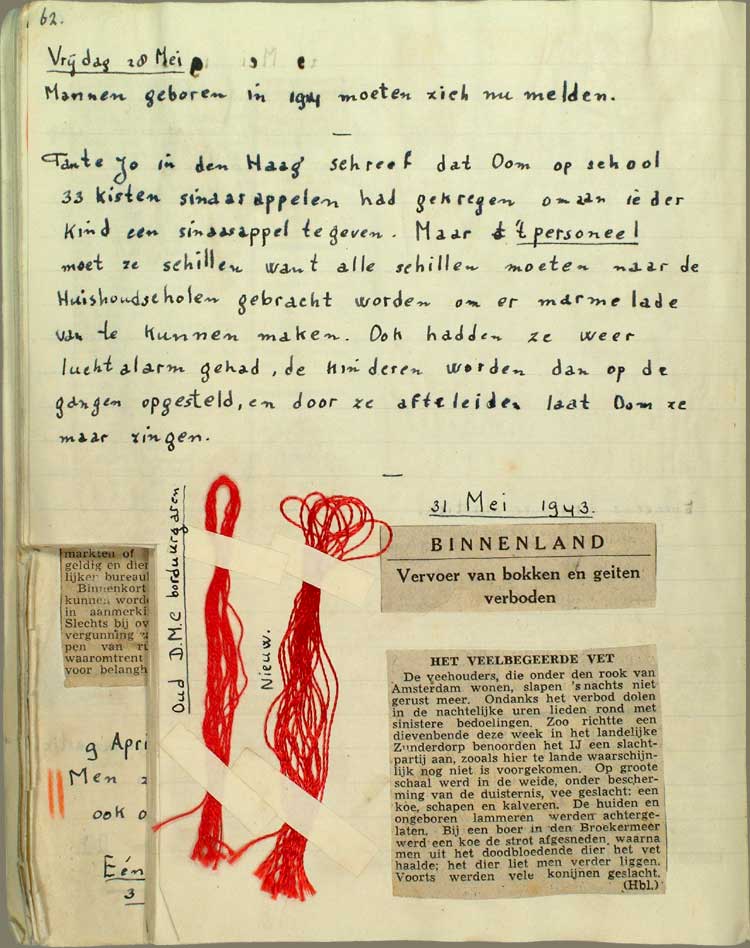 62.
Vrijdag 28 Mei
Mannen geboren in 1924 moeten zich nu melden.
Tante Jo in den Haag schreef dat Oom op school
33 kisten sinaasappelen had gekregen om aan ieder
kind een sinaasappel te geven. Maar 't personeel
moet ze schillen want alle schillen moeten naar de
Huishoudscholen gebracht worden om er marmelade
van te kunnen maken. Ook hadden ze weer
luchtalarm gehad, de kinderen worden dan op de
gangen opgesteld, en door ze afteleiden laat Oom ze
maar zingen.
31 Mei 1943.
Oud D.M.C borduurgaren
Nieuw.
BINNENLAND
Vervoer van bokken en geiten
verboden
HET VEELBEGEERDE VET
De veehouders, die onder den rook van
Amsterdam wonen, slapen 's nachts niet
gerust meer. Ondanks het verbod dolen
in de nachtelijke uren lieden rond met
sinistere bedoelingen. Zoo richtte een
dievenbende deze week in het landelijke
Zunderdorp benoorden het IJ een slacht-
partij aan, zooals hier te lande waarschijn-
lijk nog niet is voorgekomen. Op groote
schaal werd in de weide, onder bescher-
ming van de duisternis, vee geslacht: een
koe, schapen en kalveren. De huiden en
ongeboren lammeren werden achterge-
laten. Bij een boer in den Broekermeer
werd een koe de strot afgesneden, waarna
men uit het doodbloedende dier het vet
haalde; het dier liet men verder liggen.
Voorts werden vele konijnen geslacht.
(Hbl.)
markten of
geldig en dier
lijker bureaul
Binnenkort
kunnen word
in aanmerki
Slechts bij ov
vergunning
pen van
waaromtrent
voor belangh
9 Apri
Men
ook
Eén
3